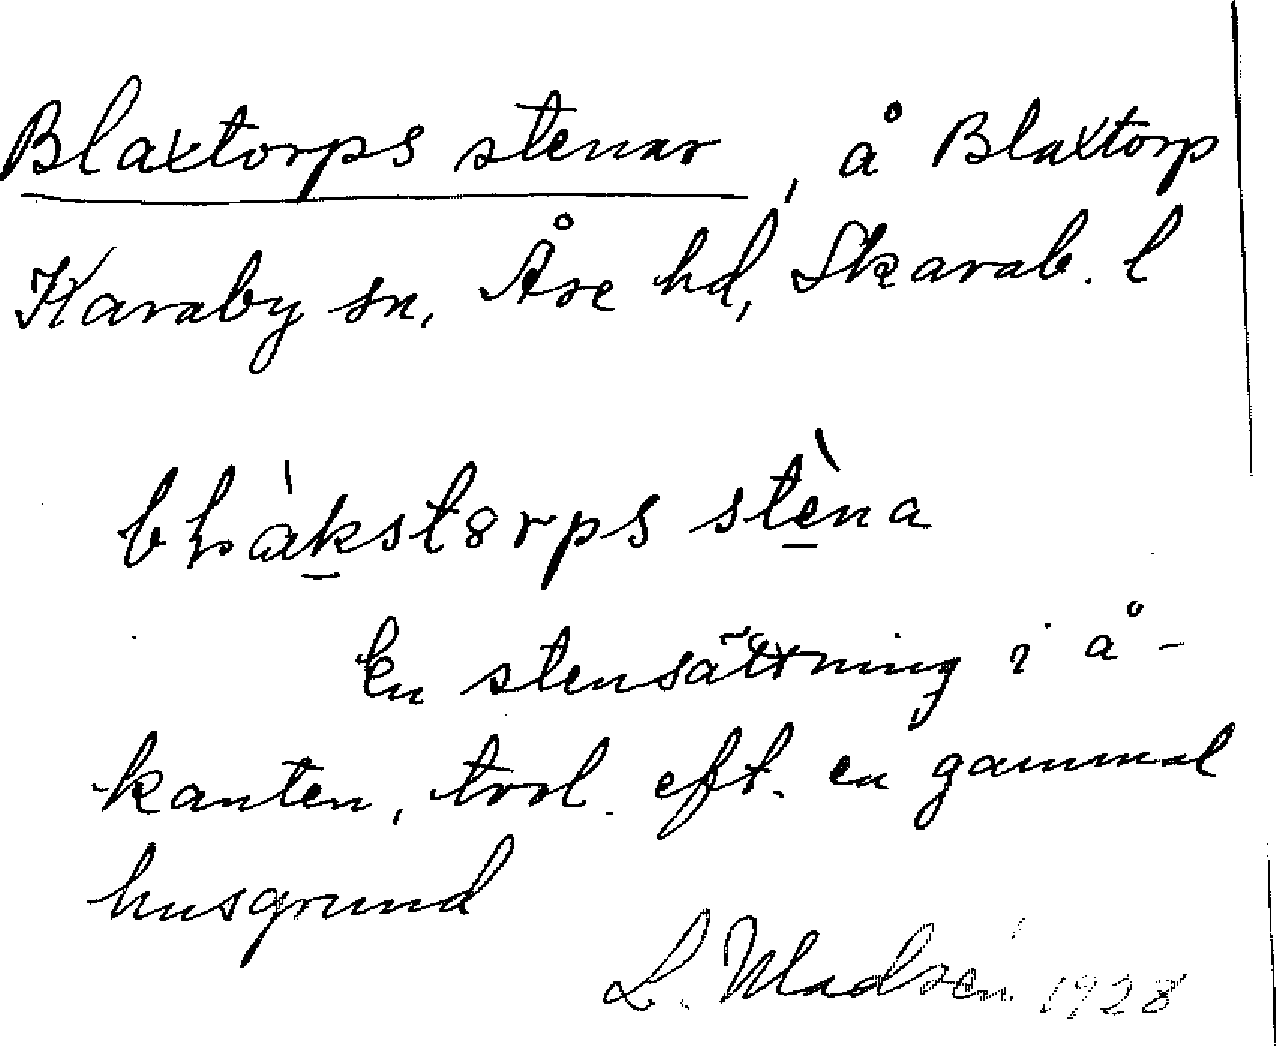 Blaxtorps stenar, å Blaxtorp
Karaby sn, Åse hd, Skarab. l
stèna
En stensättning i å-
kanten, trol. eft. en gammal
husgrund
L. Madsén 1928